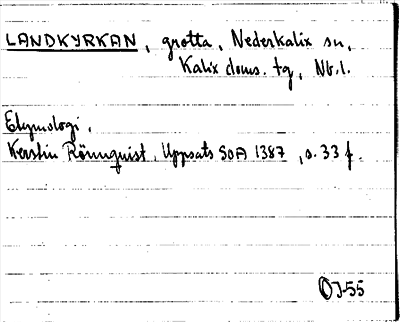 LANDKYRKAN, grotta, Nederkalix sn,
Kalix doms. tg, Nb.l.
Etymologi,
Kerstin Rönnquist, Uppsats SOA 1387, s. 33 f.
OJ-55